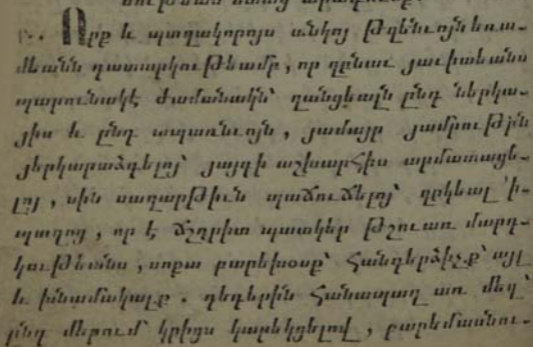 Ոյք և պտղակորոյս անկոյ թղենւոյն եռա-
մեանն դատարկութեամբ, որ զբնաւ յաւիտեանս
պարունակէ ժամանակին՝ զանցեալն ընդ ներկա-
յիս և ընդ ապառնւոյն, յամայր յամրութիւն
յերկարաձգելոյ՝ յայդի աշխարհիս արմատացե-
լոյ, սին սաղարթիւն պաճուճելոյ՝ զրկեալ ՚ի
պտղոց, որ է ճշդրիտ պատկեր թշուառ մարդ-
կութեանս, սոքա բարեխօսք՝ հանդերձիչք՝ այլ
և խնամակալք. դեգերին հանապազ առ մեզ՝
ընդ մերում կրիցս կարեկցելով, բարեմասնու-